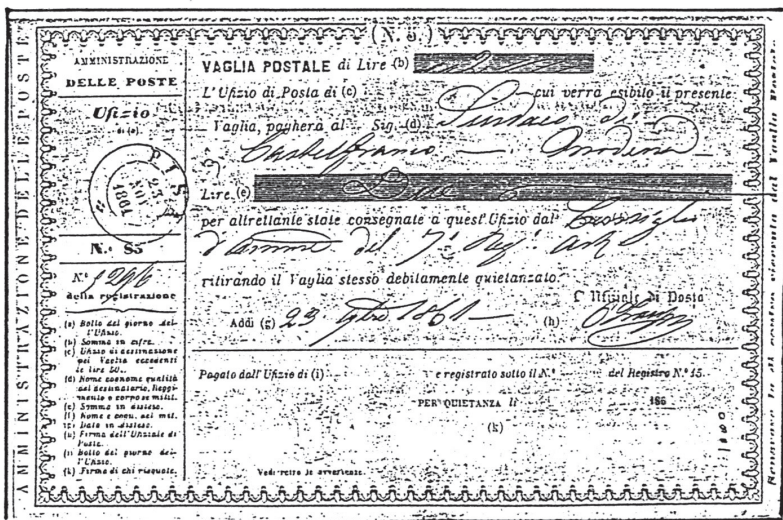 AMMINISTRAZIONE DELLE POSTE
(N. 5.)
AMMINISTRAZIONE
DELLE POSTE
Ufizio
di (a)
PISA
23
NOV
1861
N.° 85
N.° 1296
della registrazione
(a) Bollo del giorno del-
l'Ufizio.
(b) Somma in cifre.
(c) Ufizio di destinazione
pei Vaglia eccedenti
le lire 50.
(d) Nome cognome qualità
del destinatario, Reggi-
mento o corpo se milit.
(e) Somma in distese.
(f) Nome e cogn. del mit.
(g) Data in distese.
(h) Firma dell'Ufiziale di
Posta.
(i) Bollo del giorno del-
l'Ufizio.
(k) Firma di chi riquote.
VAGLIA POSTALE di Lire (b)
L'Ufizio di Posta di (c) cui verrà esibito il presente
Vaglia, pagherà al Sig. (d) Sindaco di
Castelfranco — Modena
Lire (e) Due
per altrettante state consegnate a quest'Ufizio dal Consiglio
d'Amme del 7° Regt
ritirando il Vaglia stesso debitamente quietanzato.
L'Ufiziale di Posta
Addì (g) 23 9bre 1861 (h)
Pagato dall'Ufizio di (i) e registrato sotto il N.° del Registro N.° 15.
PER QUIETANZA li 186
(k)
Vedi retro le avvertenze